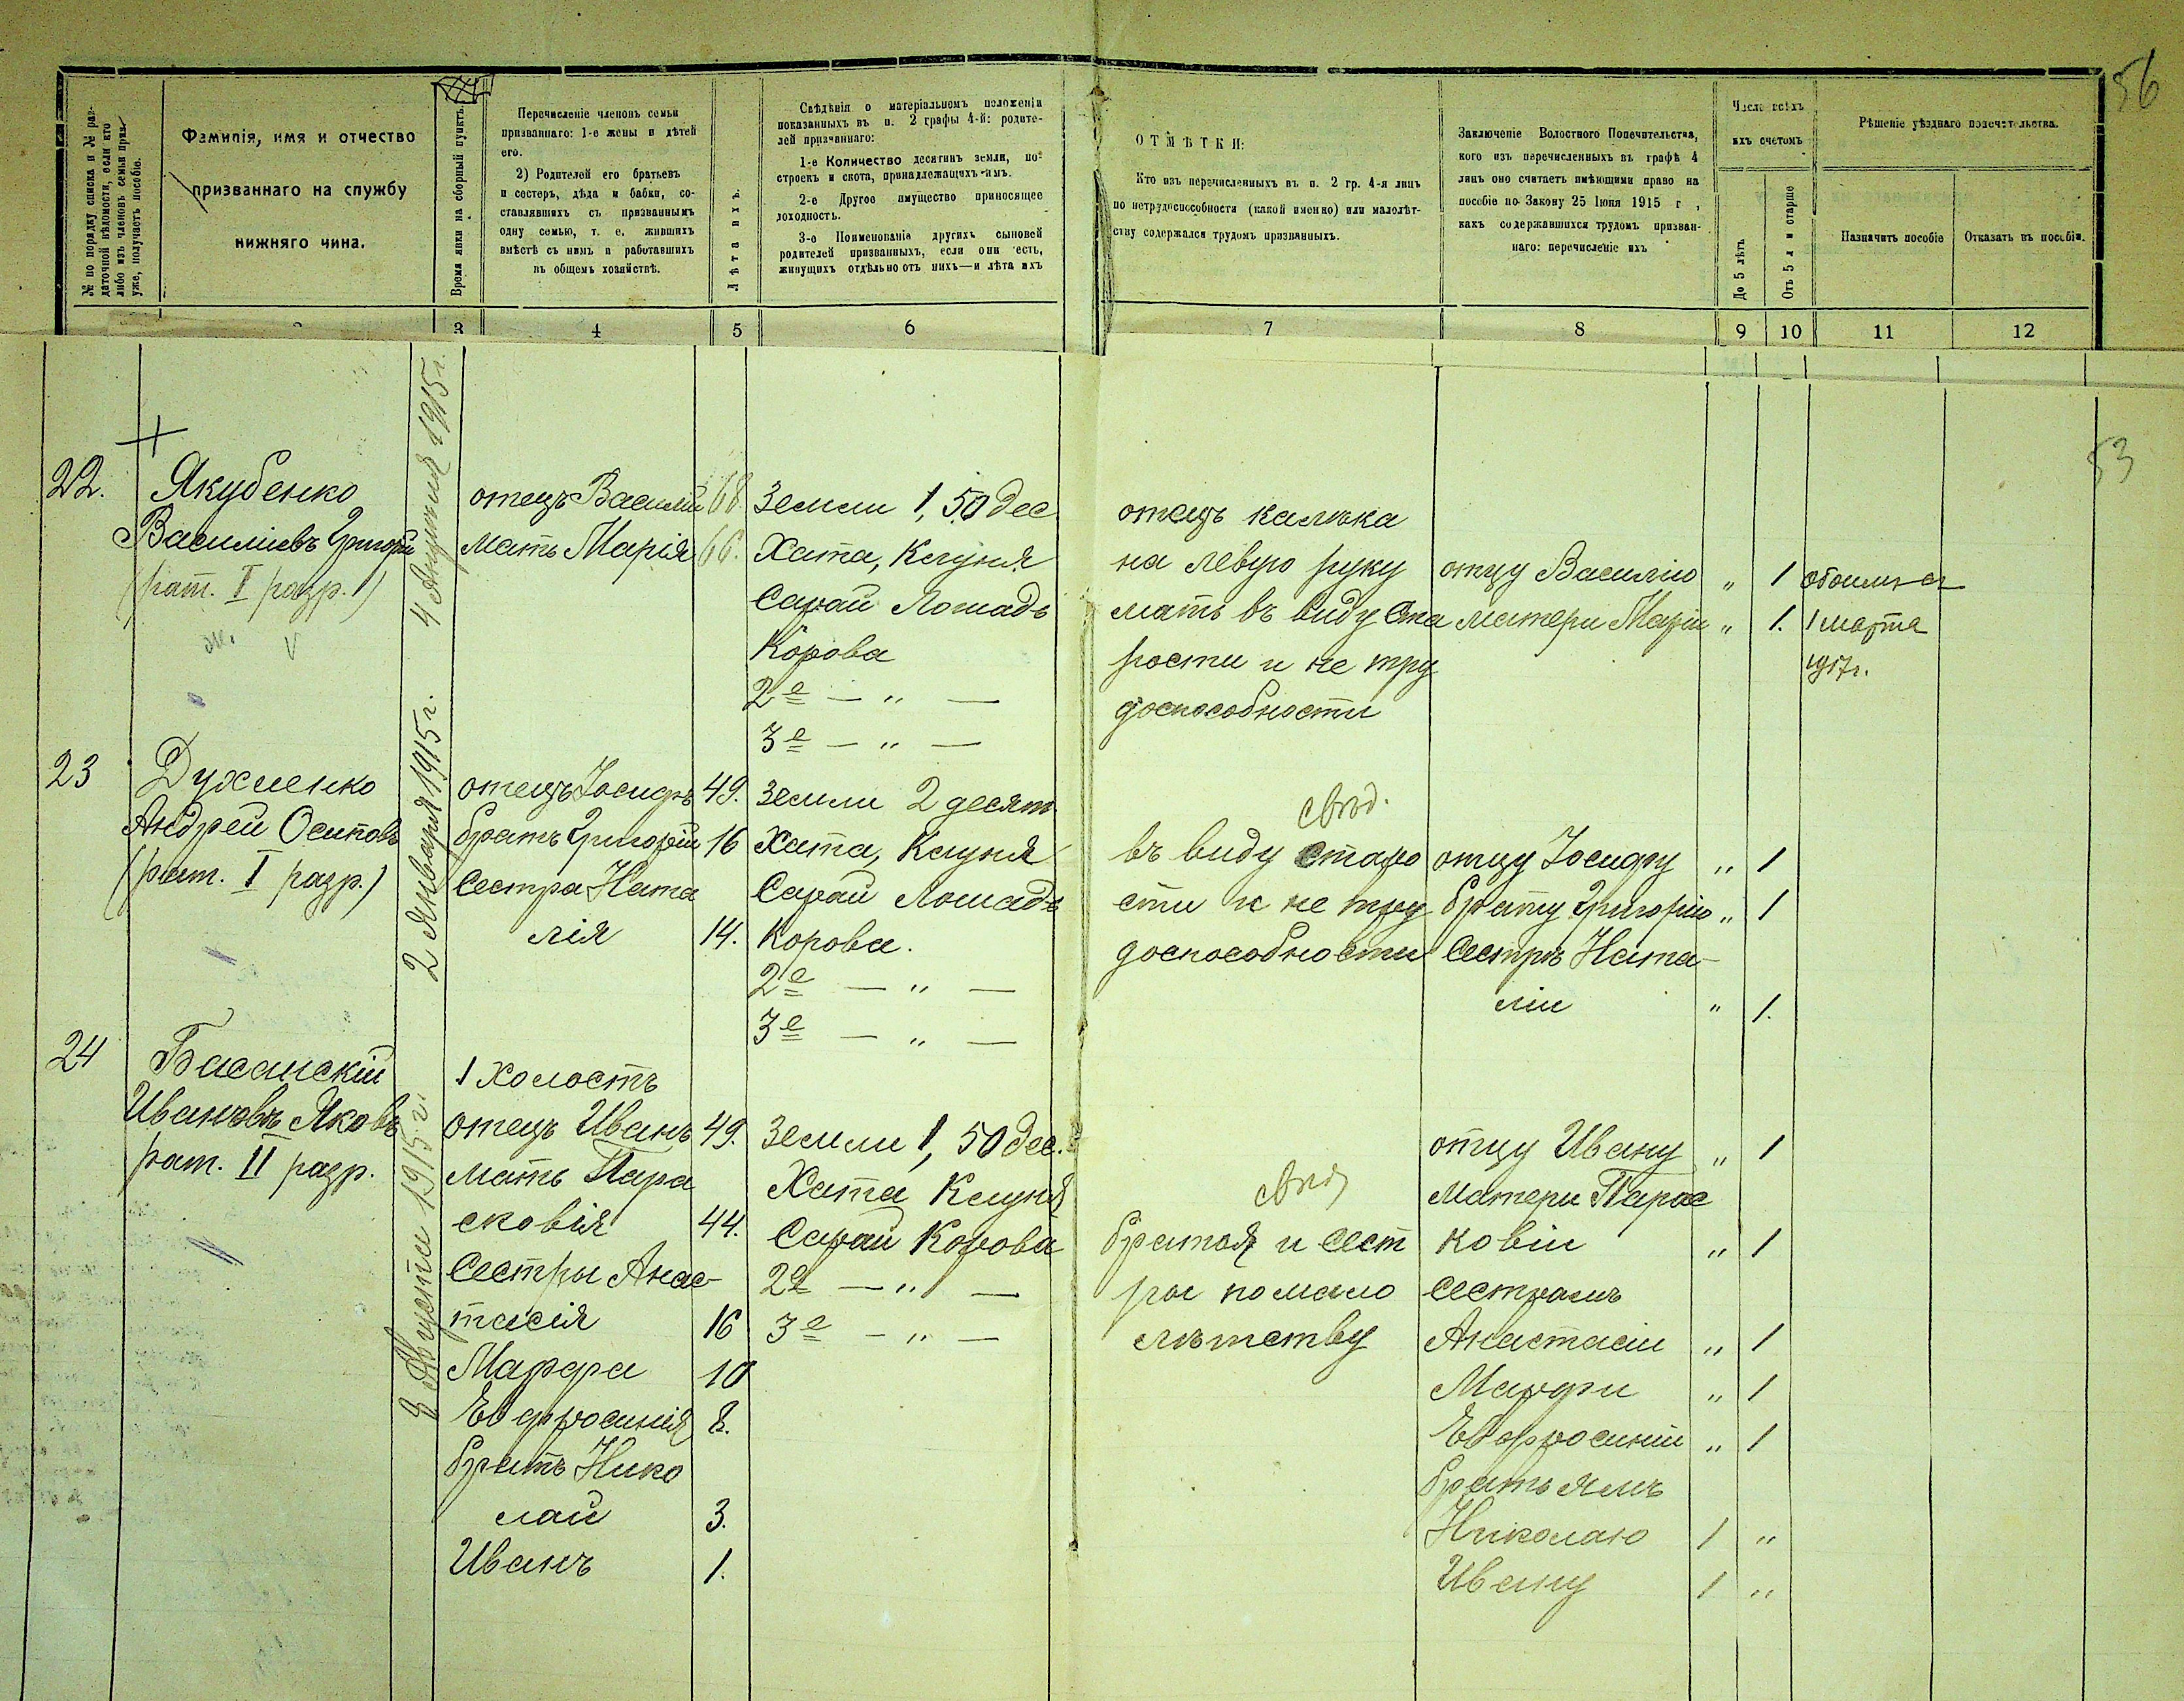 56
№ по порядку списка и № раз-
даточной вѣдомости, если кто
либо изъ членовъ семьи приз.
уже, получаетъ пособіе.
Фамилія, имя и отчество
призваннаго на службу
нижняго чина.
Время явки на сборный пунктъ.
Перечисленіе членовъ семьи
призваннаго: 1-е жены и дѣтей
его.
2) Родителей его братьевъ
и сестеръ, дѣда и бабки, со-
ставлявшихъ съ призваннымъ
одну семью, т. е. жившихъ
вмѣстѣ съ нимъ и работавшихъ
въ общемъ хозяйствѣ.
Лѣта ихъ.
Свѣдѣнія о матеріальномъ положеніи
показанныхъ въ п. 2 графы 4-й: родите-
лей призваннаго:
1-е Количество десятинъ земли, по-
строекъ и скота, принадлежащихъ имъ.
2-е Другое имущество приносящее
доходность.
3-е Поименованіе другихъ сыновей
родителей призванныхъ, если они есть,
живущихъ отдѣльно отъ нихъ—и лѣта ихъ
ОТМѢТКИ:
Кто изъ перечисленныхъ въ п. 2 гр. 4-я лицъ
по нетрудоспособности (какой именно) или малолѣт-
ству содержался трудомъ призванныхъ.
Заключеніе Волостного Попечительства,
кого изъ перечисленныхъ въ графѣ 4
лицъ оно считаетъ имѣющими право на
пособіе по Закону 25 Іюня 1915 г ,
какъ содержавшихся трудомъ призван-
наго: перечисленіе ихъ
Число всѣхъ
ихъ счетомъ
До 5 лѣтъ
Отъ 5 л и старше
Рѣшеніе уѣзднаго попечительства.
Назначить пособіе
Отказать въ пособіи.
3 4 5 6 7 8 9 10 11 12
53
22.
Якубенко
Василіевъ Григорій
(рат. II разр.)
4 1915 г.
отецъ Василій 68
мать Марія 66.
Земли 1,50 дес
Хата, Клуня
Сарай Лошадь
Корова
2е — „ —
3е — „ —
отецъ калѣка
на левую руку
мать въ виду Ста
рости и не тру
доспособности
отцу Василію „ 1
матери Маріи „ 1.
обоимъ съ
1 марта
1917 г.
23
Духненко
Андрей Осиповъ
(рат. I разр.)
2 Января 1915 г.
отецъ Іосифъ 49.
братъ Григорій 16
Сестра Ната
лія 14.
земли 2 десят.
Хата, Клуня
Сарай Лошадь
корова.
2е — „ —
3е — „ —
свѣд.
въ виду старо
сти и не тру
доспособности
отцу Іосифу „ 1
брату Григорію „ 1
Сестрѣ Ната-
ліи „ 1.
24
Басанскій
Ивановъ Яковъ
рат. II разр.
8 Августа 1915 г.
1 Холостъ
отецъ Иванъ 49.
мать Пара
сковія 44.
Сестры Анас-
тасія 16
Марфа 10
Евфросинія 8.
братъ Нико
лай 3.
Иванъ 1.
Земли 1,50 дес.
Хата Клуня
Сарай Корова
2е — „ —
3е — „ —
свѣд
братья и сест
ры по мало
лѣтству
отцу Ивану „ 1
матери Парас
ковіи „ 1
сестрамъ
Анастасіи „ 1
Марфи „ 1
Евфросиніи „ 1
братьямъ
Николаю 1 „
Ивану 1 „